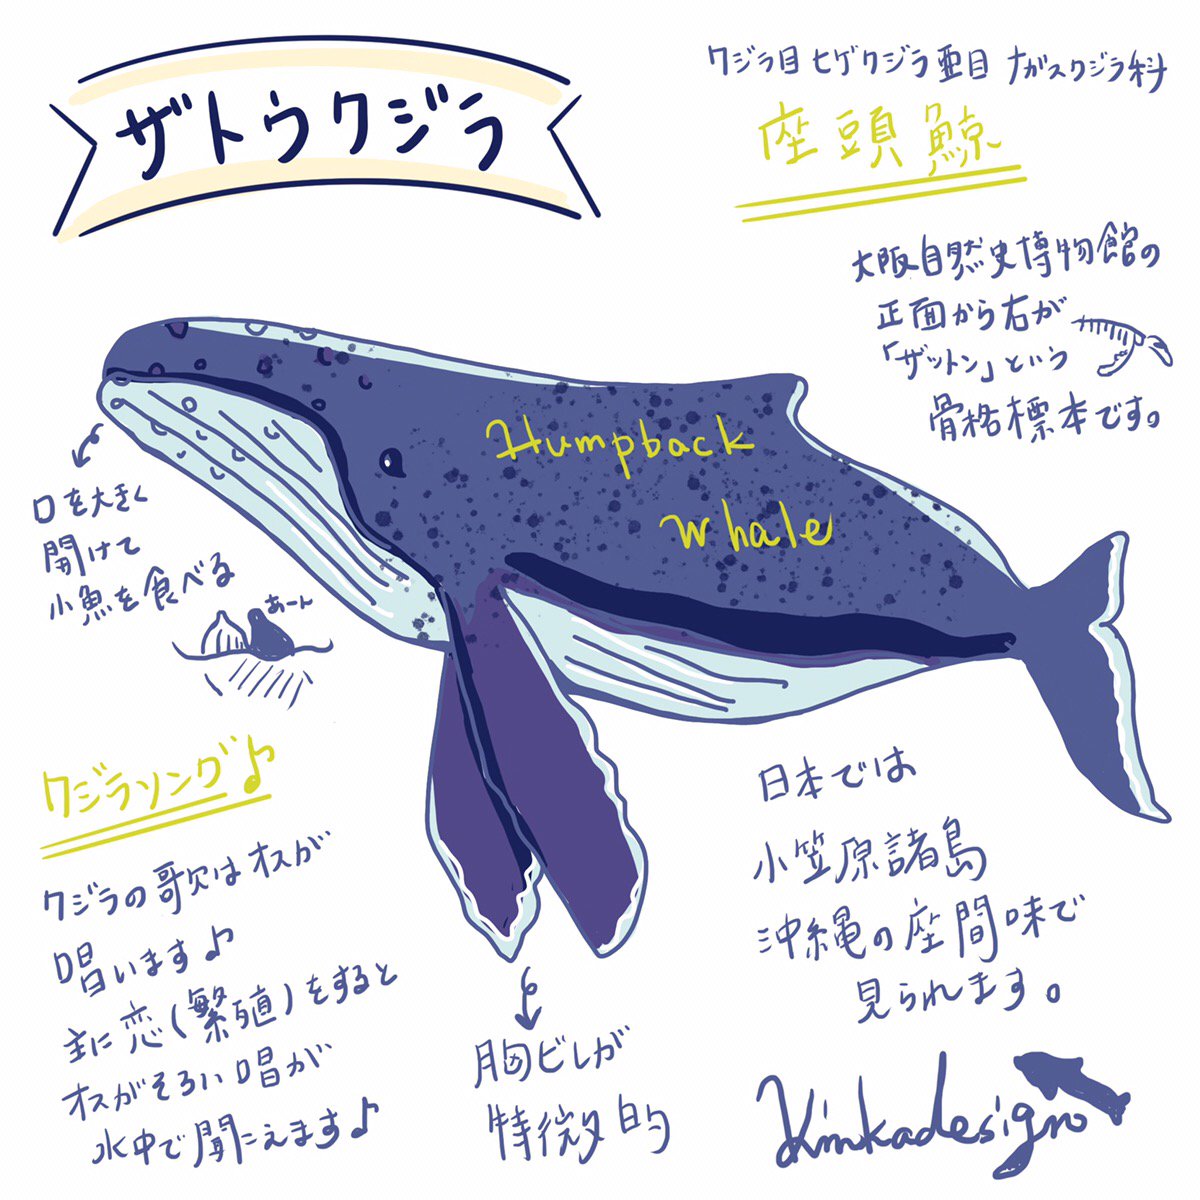 ザトウクジラ
クジラ目 ヒゲクジラ亜目 ナガスクジラ科
座頭鯨
大阪自然史博物館の
正面から右が
「ザットン」という
骨格標本です。
Humpback
Whale
口を大きく
開けて
小魚を食べる
あーん
クジラソング♪
クジラの歌はオスが
唱います♪
主に恋(繁殖)をすると
オスがそろい唱が
水中で聞こえます♪
胸ビレが
特徴的
日本では
小笠原諸島
沖縄の座間味で
見られます。
Kinkadesign